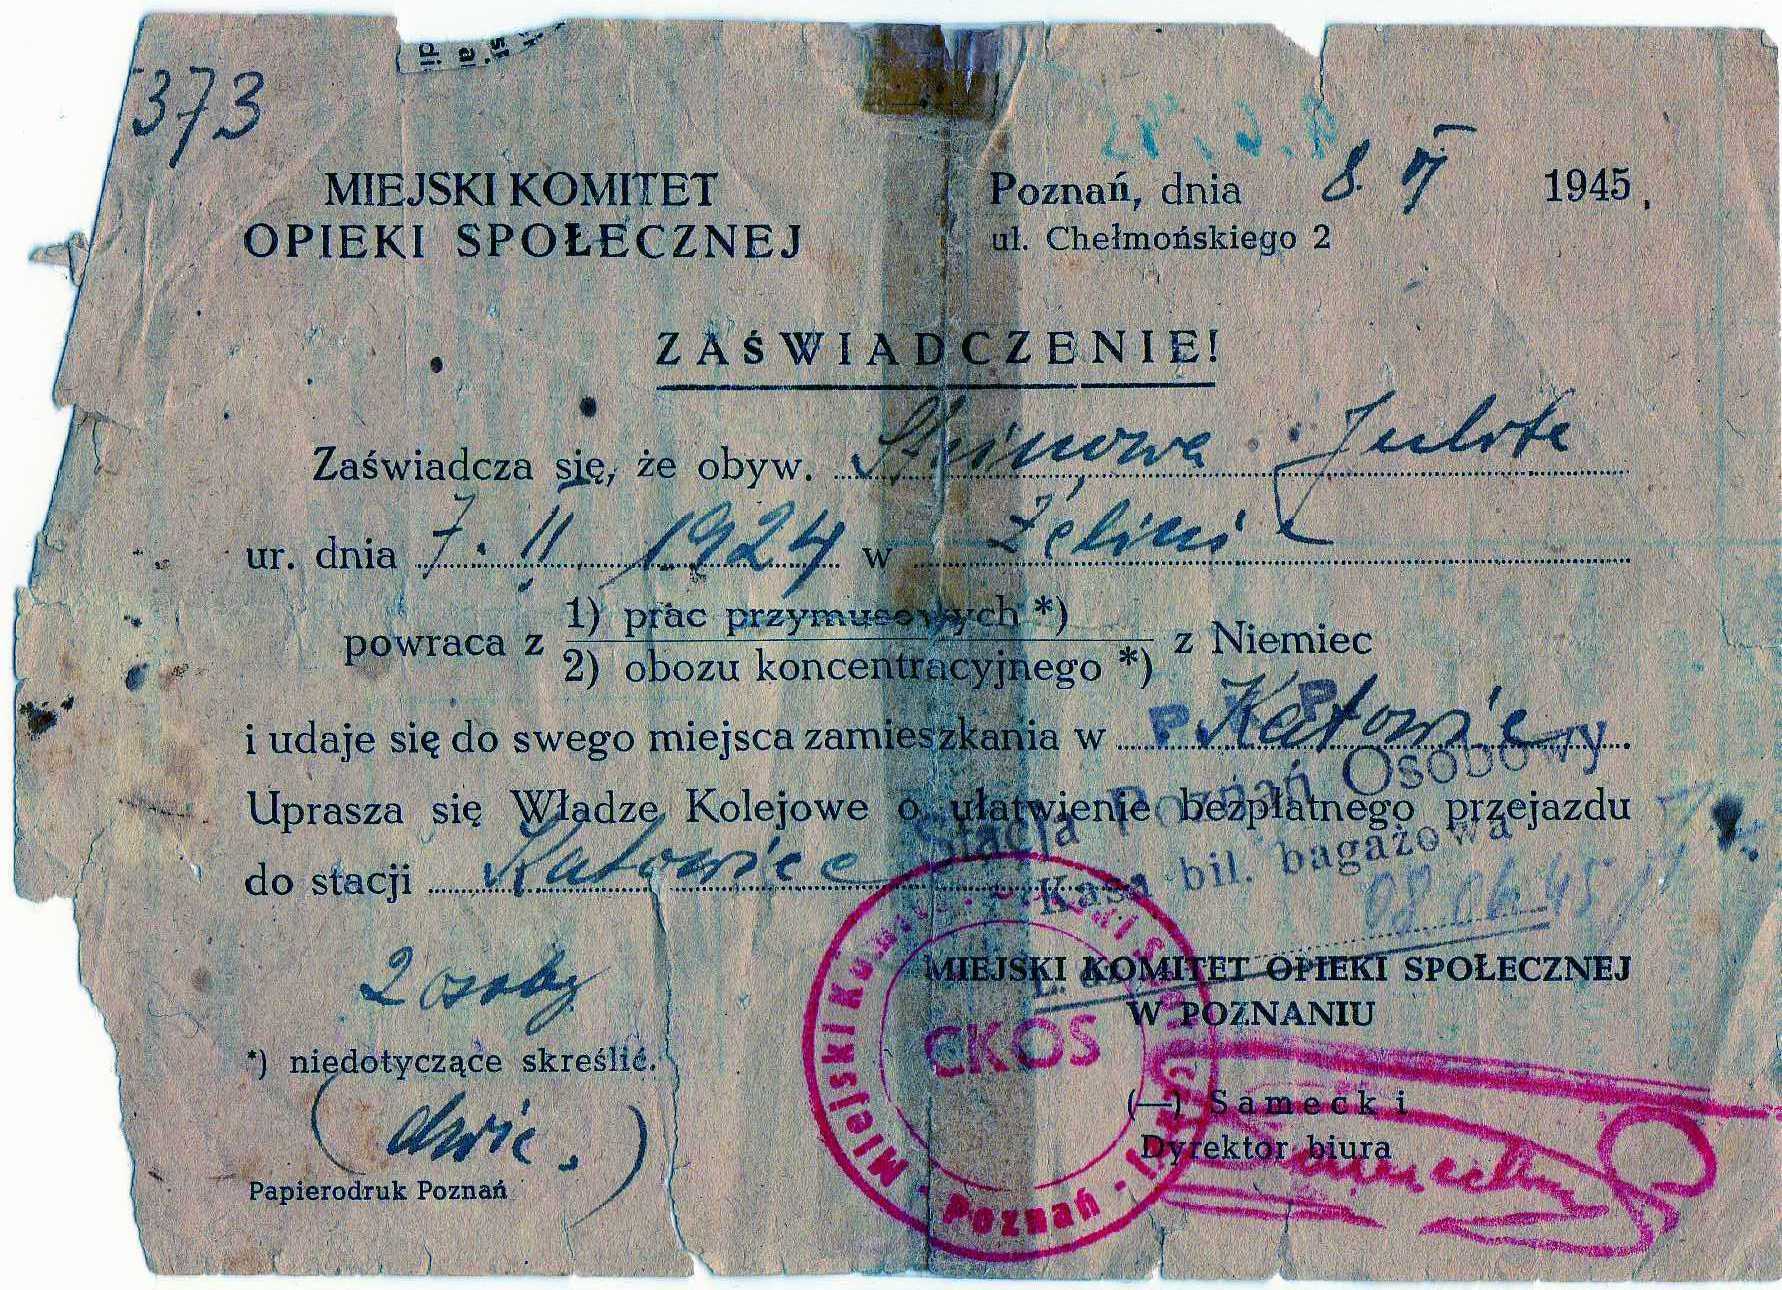 373
MIEJSKI KOMITET
OPIEKI SPOŁECZNEJ
Poznań, dnia 8. VI 1945.
ul. Chełmońskiego 2
ZAŚWIADCZENIE!
Zaświadcza się, że obyw.
ur. dnia 7. II 1924 w
powraca z 1) prac przymusowych *)
2) obozu koncentracyjnego *) z Niemiec
i udaje się do swego miejsca zamieszkania w Katowic
P. K. P.
Uprasza się Władze Kolejowe o ułatwienie bezpłatnego przejazdu
do stacji Katowice
Stacja Poznań Osobowy
Kasa bil. bagażowa
08.06.45
2 osoby
MIEJSKI KOMITET OPIEKI SPOŁECZNEJ
W POZNANIU
*) niedotyczące skreślić.
(dwie.)
(—) Samecki
Dyrektor biura
Papierodruk Poznań
CKOS
Miejski Poznań